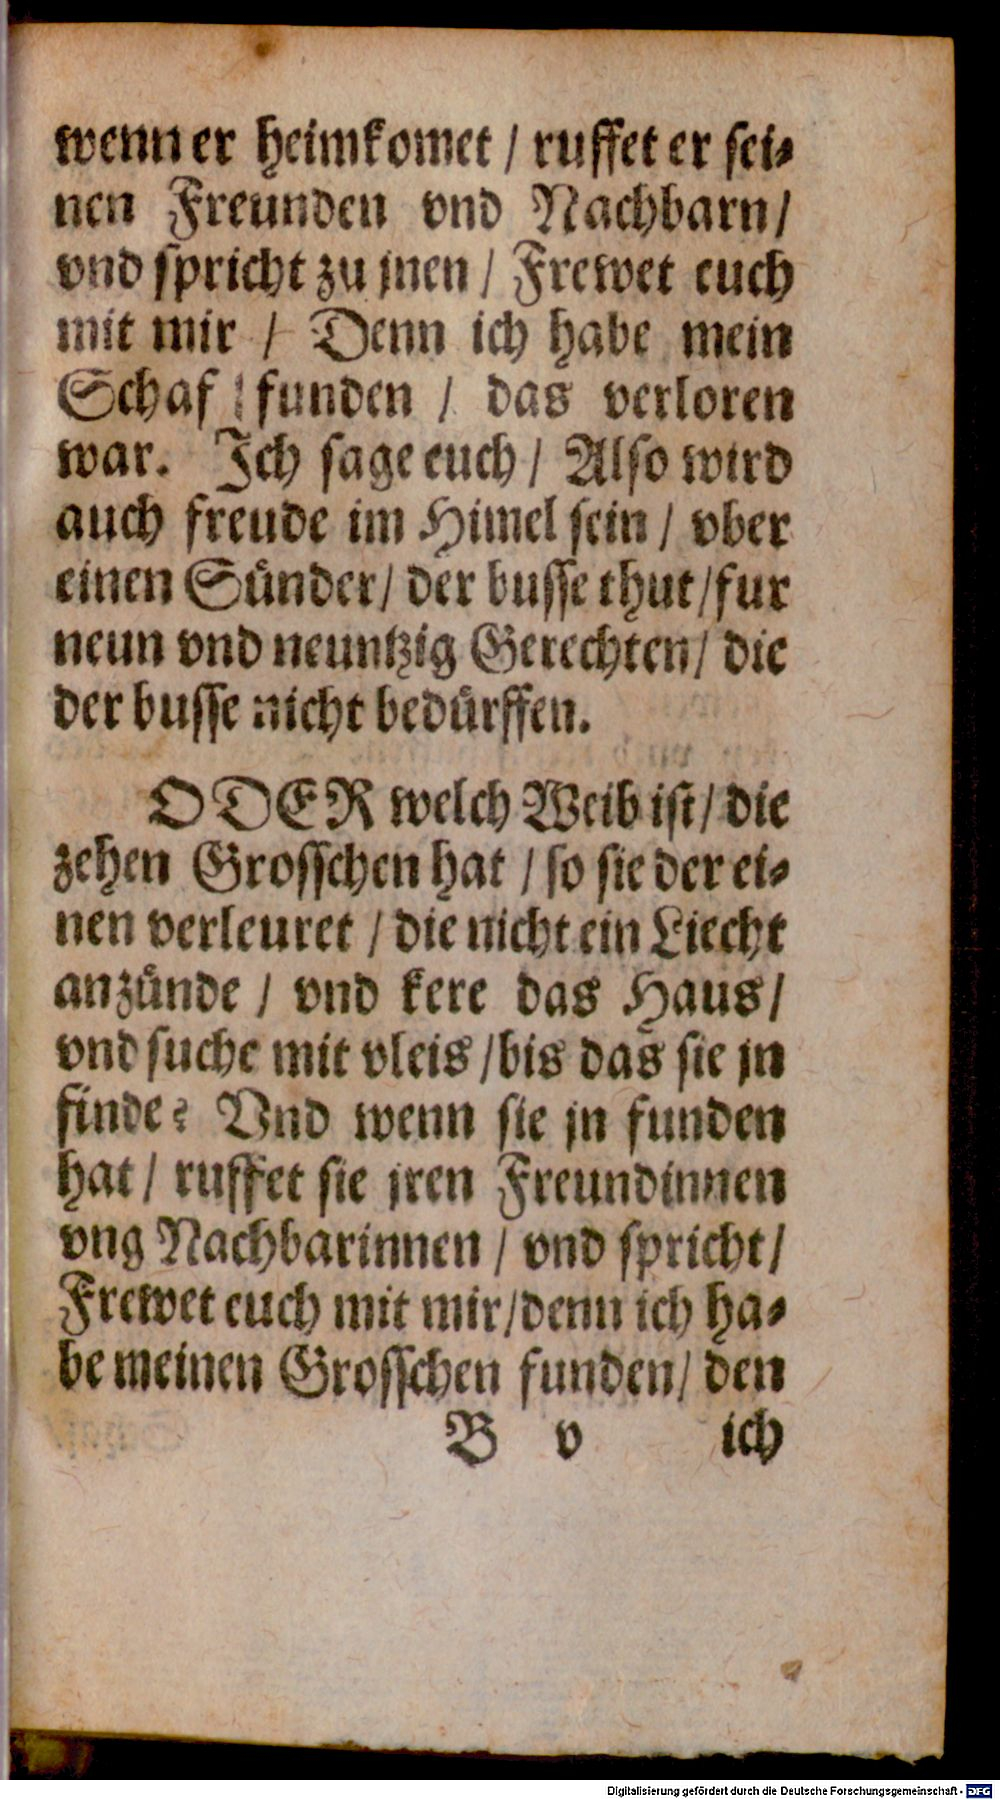 wenn er heimkomet / ruffet er sei⸗
nen Freunden vnd Nachbarn /
vnd spricht zu jnen / Frewet euch
mit mir / Denn ich habe mein
Schaf funden / das verloren
war. Ich sage euch / Also wird
auch freude im Himel sein / vber
einen Sünder / der busse thut / fur
neun vnd neuntzig Gerechten / die
der busse nicht bedürffen.
ODER welch Weib ist / die
zehen Grosschen hat / so sie der ei⸗
nen verleuret / die nicht ein Liecht
anzünde / vnd kere das Haus /
vnd suche mit vleis / bis das sie jn
finde? Vnd wenn sie jn funden
hat / ruffet sie jren Freundinnen
vng Nachbarinnen / vnd spricht /
Frewet euch mit mir / denn ich ha⸗
be meinen Grosschen funden / den
B v ich
Digitalisierung gefördert durch die Deutsche Forschungsgemeinschaft - DFG